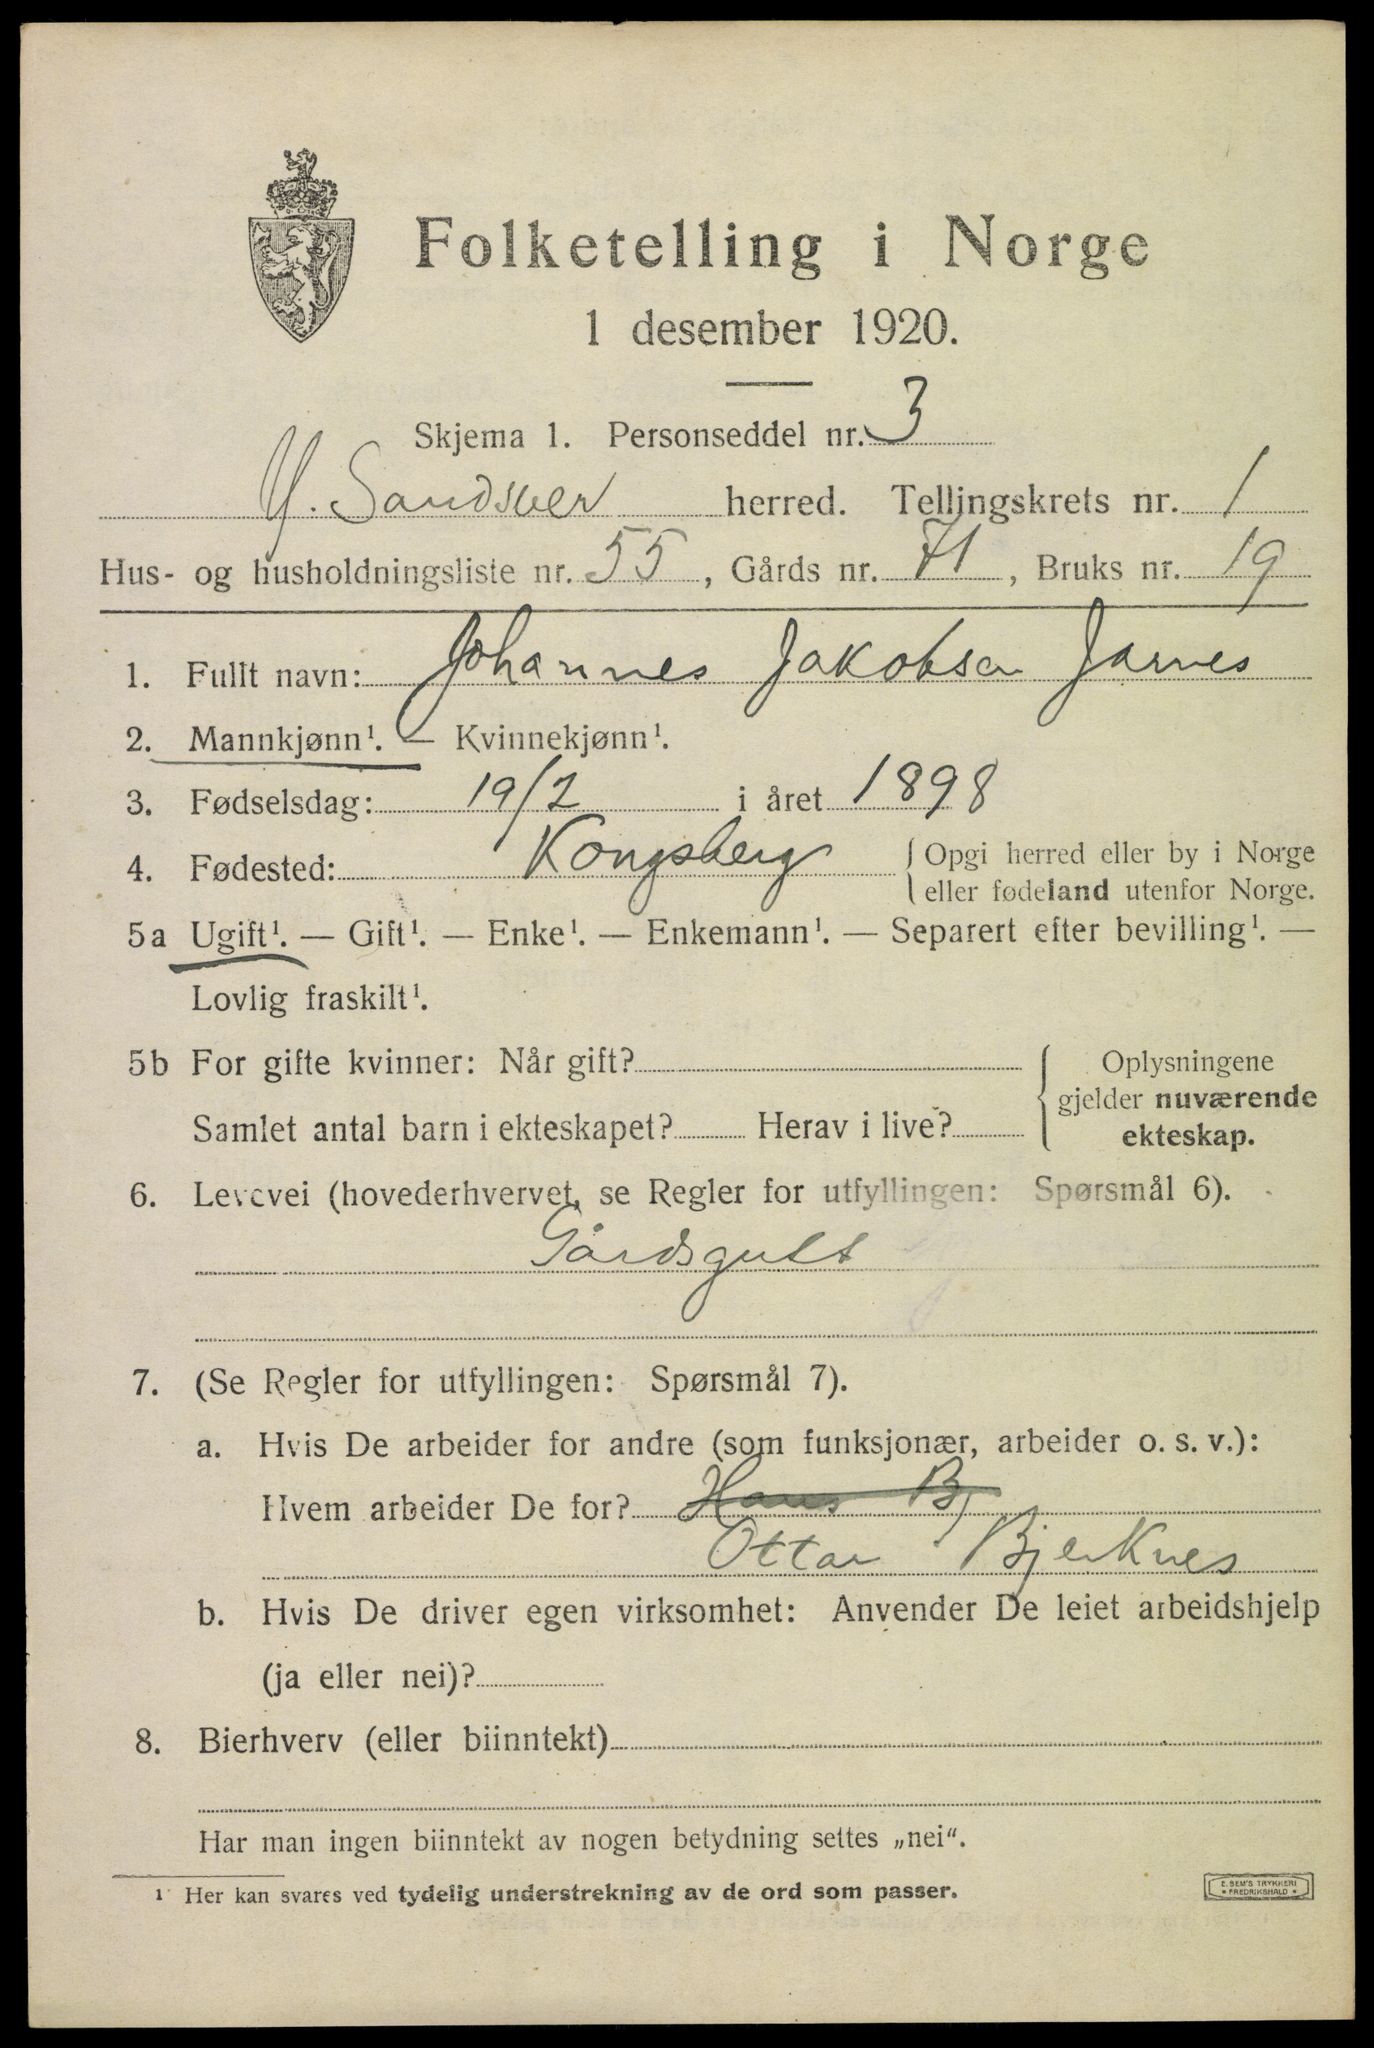 Folketelling i Norge
1 desember 1920.
Skjema 1. Personseddel nr. 3
Y. Sandsver herred. Tellingskrets nr. 1
Hus- og husholdningsliste nr. 55, Gårds nr. 71, Bruks nr. 19
1. Fullt navn: Johannes Jakobsen Jarnes
2. Mannkjønn¹. — Kvinnekjønn¹.
3. Fødselsdag: 19/2 i året 1898
4. Fødested: Kongsberg { Opgi herred eller by i Norge
eller fødeland utenfor Norge.
5a Ugift¹. — Gift¹. — Enke¹. — Enkemann¹. — Separert efter bevilling¹. —
Lovlig fraskilt¹.
5b For gifte kvinner: Når gift?
Samlet antal barn i ekteskapet? Herav i live?
Oplysningene
gjelder nuværende
ekteskap.
6. Levevei (hovederhvervet, se Regler for utfyllingen: Spørsmål 6).
Gårdsgutt
7. (Se Regler for utfyllingen: Spørsmål 7).
a. Hvis De arbeider for andre (som funksjonær, arbeider o. s. v.):
Hvem arbeider De for? Hans Bj
Ottar Bjerknes
b. Hvis De driver egen virksomhet: Anvender De leiet arbeidshjelp
(ja eller nei)?
8. Bierhverv (eller biinntekt)
Har man ingen biinntekt av nogen betydning settes „nei“.
¹ Her kan svares ved tydelig understrekning av de ord som passer.
E. SEM'S TRYKKERI
* FREDRIKSHALD *